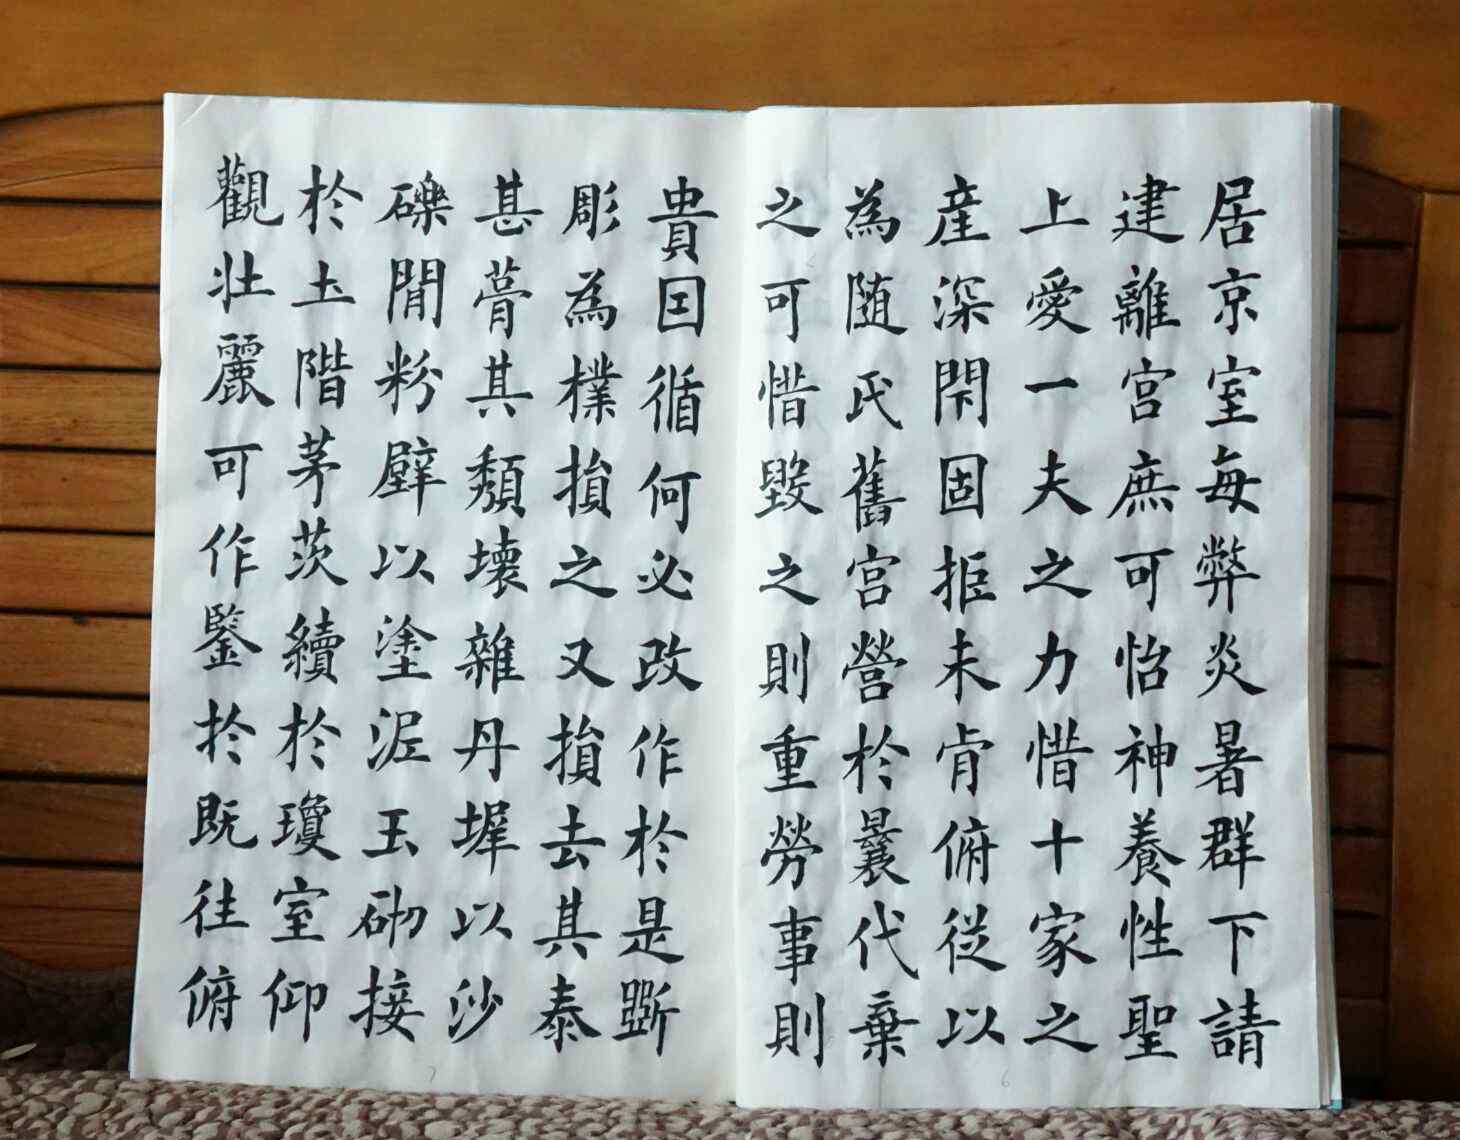 居京室每弊炎暑群下請
建離宮庶可怡神養性聖
上愛一夫之力惜十家之
産深閇固拒未肯俯從以
為随氏舊宮營於曩代棄
之可惜毀之則重勞事則
6
貴因循何必改作於是斲
彫為樸損之又損去其泰
甚葺其頹壞雜丹墀以沙
礫閒粉壁以塗泥玉砌接
於土階茅茨續於瓊室仰
觀壯麗可作鑒於既往俯
7